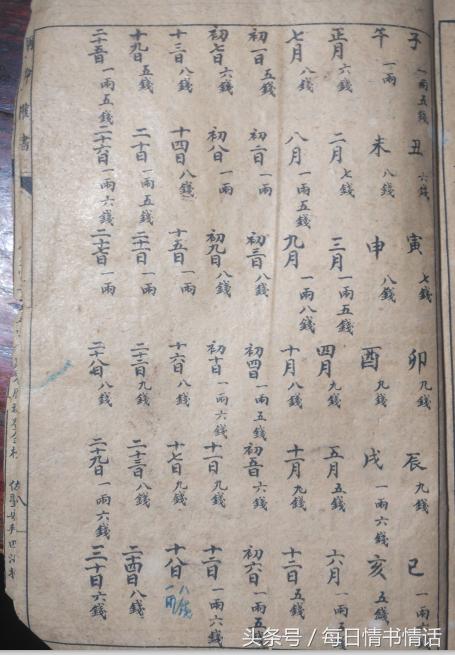 子 一兩五錢 丑 六錢 寅 七錢 卯 九錢 辰 九錢 巳 一兩
午 一兩 未 八錢 申 八錢 酉 九錢 戌 一兩六錢 亥 五錢
正月 六錢 二月 七錢 三月 一兩五錢 四月 九錢 五月 五錢 六月 一兩五
七月 八錢 八月 一兩五錢 九月 一兩八錢 十月 八錢 十一月 九錢 十二月 五錢
初一日 五錢 初二日 一兩 初三日 八錢 初四日 一兩五錢 初五日 六錢 初六日 一兩五錢
初七日 六錢 初八日 一兩 初九日 八錢 初十日 一兩六錢 十一日 九錢 十二日 一兩六錢
十三日 八錢 十四日 八錢 十五日 一兩 十六日 八錢 十七日 九錢 十八日 八錢
十九日 五錢 二十日 一兩五錢 二十一日 一兩 二十二日 九錢 二十三日 八錢 二十四日 八錢
二十五日 一兩五錢 二十六日 一兩六錢 二十七日 一兩 二十八日 八錢 二十九日 一兩六錢 三十日 六錢
头条号 / 每日情书情话